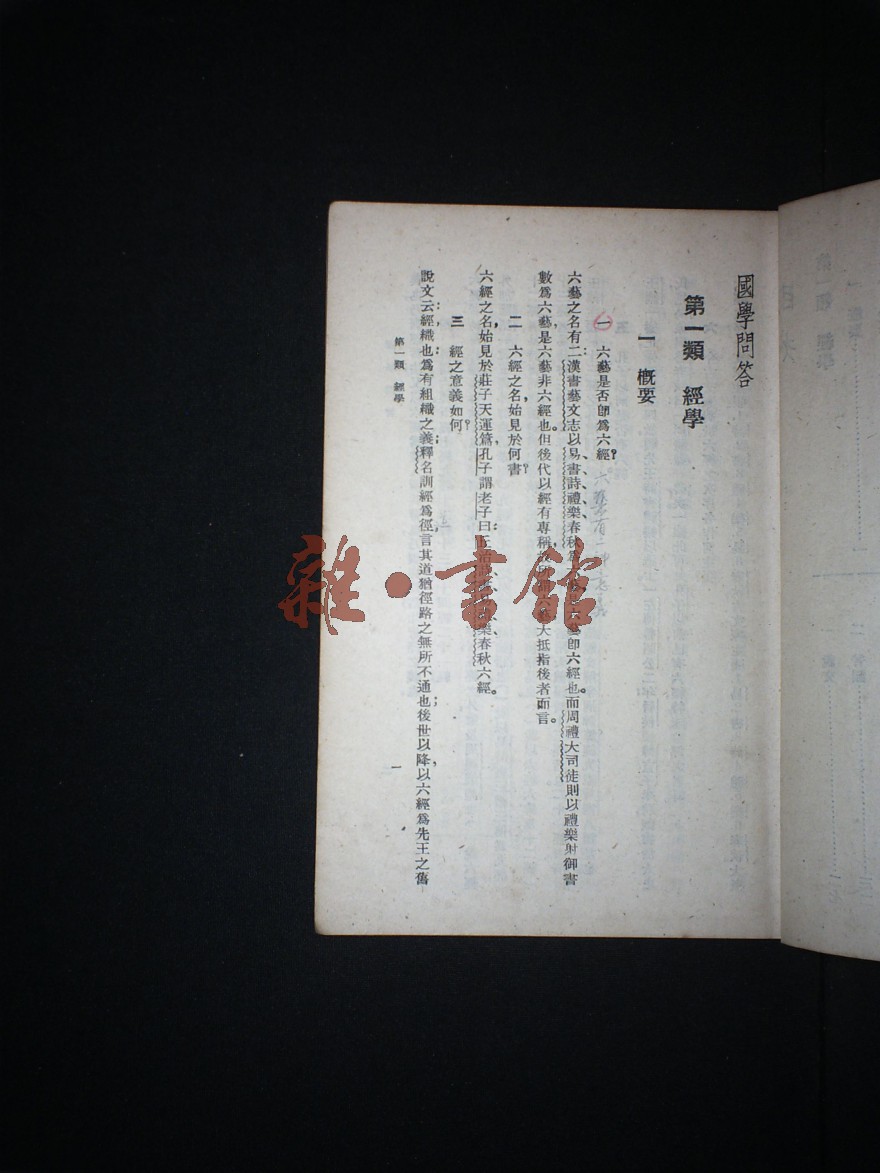 國學問答
第一類　經學
一　概要
一　六藝是否卽爲六經？
六藝之名有二：漢書藝文志以易、書、詩、禮、樂、春秋爲六藝，是六藝卽六經也。而周禮大司徒則以禮樂射御書
數爲六藝，是六藝非六經也。但後代以經有專稱，故所謂六藝，大抵指後者而言。
二　六經之名，始見於何書？
六經之名，始見於莊子天運篇，孔子謂老子曰：丘治詩、書、禮、樂、春秋六經。
三　經之意義如何？
說文云：經，織也；爲有組織之義；釋名訓經爲徑，言其道猶徑路之無所不通也；後世以降，以六經爲先王之舊
第一類　經學
一
雜·書館